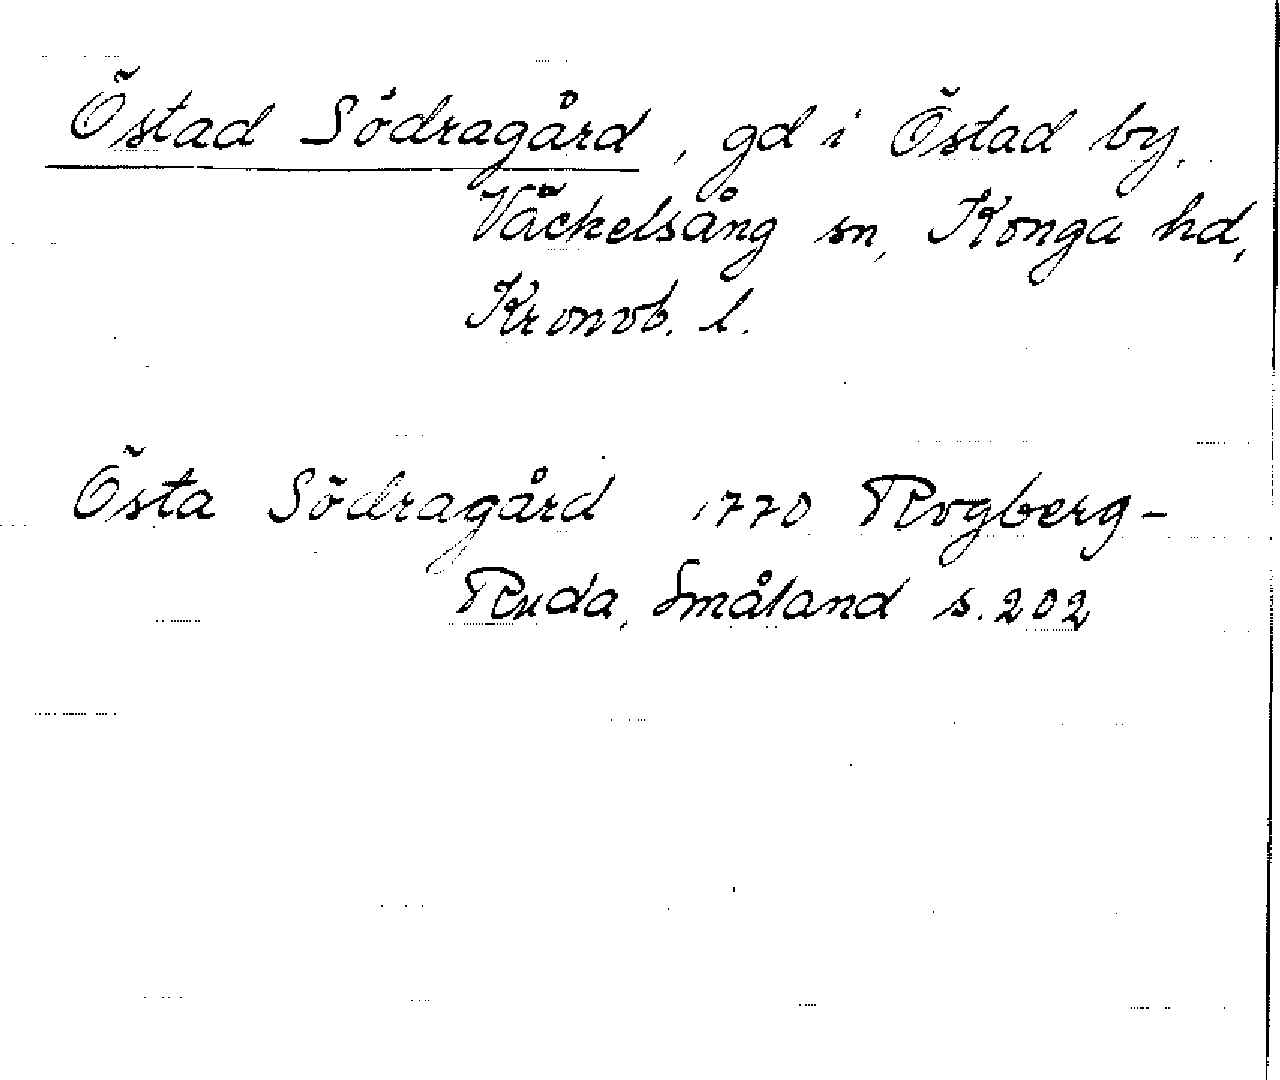 Östad Södragård, gd i Östad by,
Väckelsång sn, Konga hd,
Kronob. l.
Östa Södragård 1770 Rogberg-
Ruda, Småland s. 202